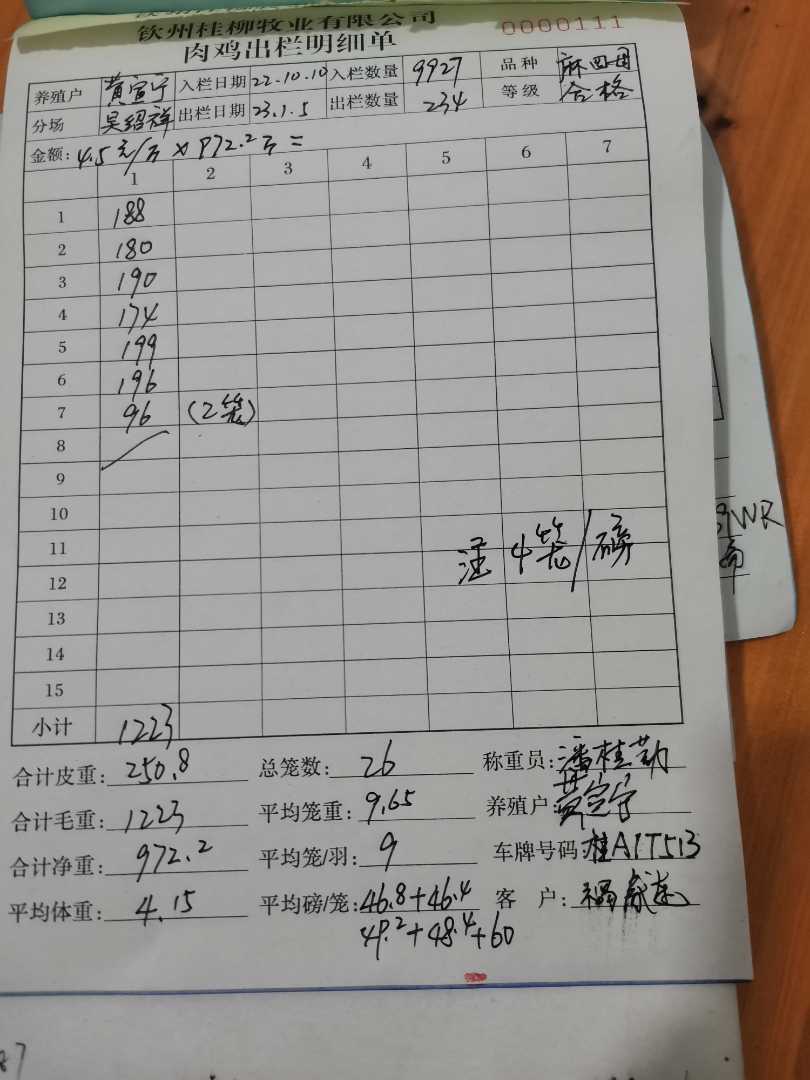 钦州桂柳牧业有限公司
肉鸡出栏明细单 0000111
养殖户 黄宣宁 入栏日期 22.10.10 入栏数量 9927 品种 麻四团
分场 吴绍祥 出栏日期 23.1.5 出栏数量 234 等级 合格
金额: 4.5元/斤 × 972.2斤 =
1 2 3 4 5 6 7
1 188
2 180
3 190
4 174
5 199
6 196
7 96 (2笼)
8
9
10
11 注 4笼/磅
12
13
14
15
小计 1223
合计皮重: 250.8 总笼数: 26 称重员: 潘桂勤
合计毛重: 1223 平均笼重: 9.65 养殖户: 黄宣宁
合计净重: 972.2 平均笼/羽: 9 车牌号码: 桂A1T513
平均体重: 4.15 平均磅/笼: 46.8+46.4 客 户:
49.2+48.4+60
WR
87